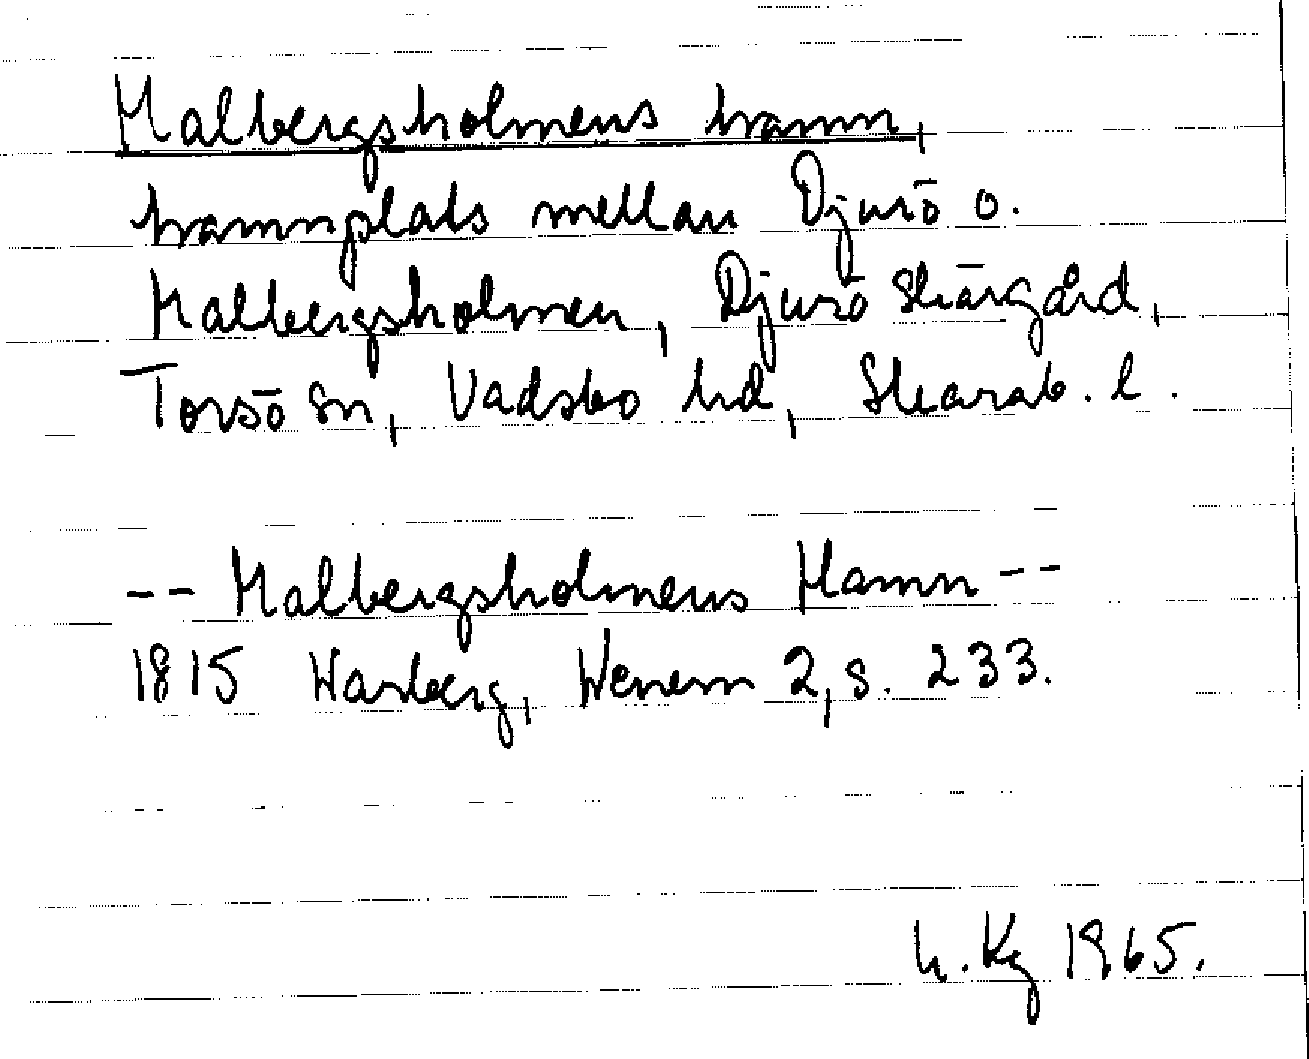 Malbergsholmens hamn,
hamnplats mellan Djurö o.
Malbergsholmen, Djurö Skärgård,
Torsö sn, Vadsbo hd, Skarab. l.
-- Malbergsholmens Hamn --
1815 Warberg, Wenern 2, s. 233.
h. Kg 1965.